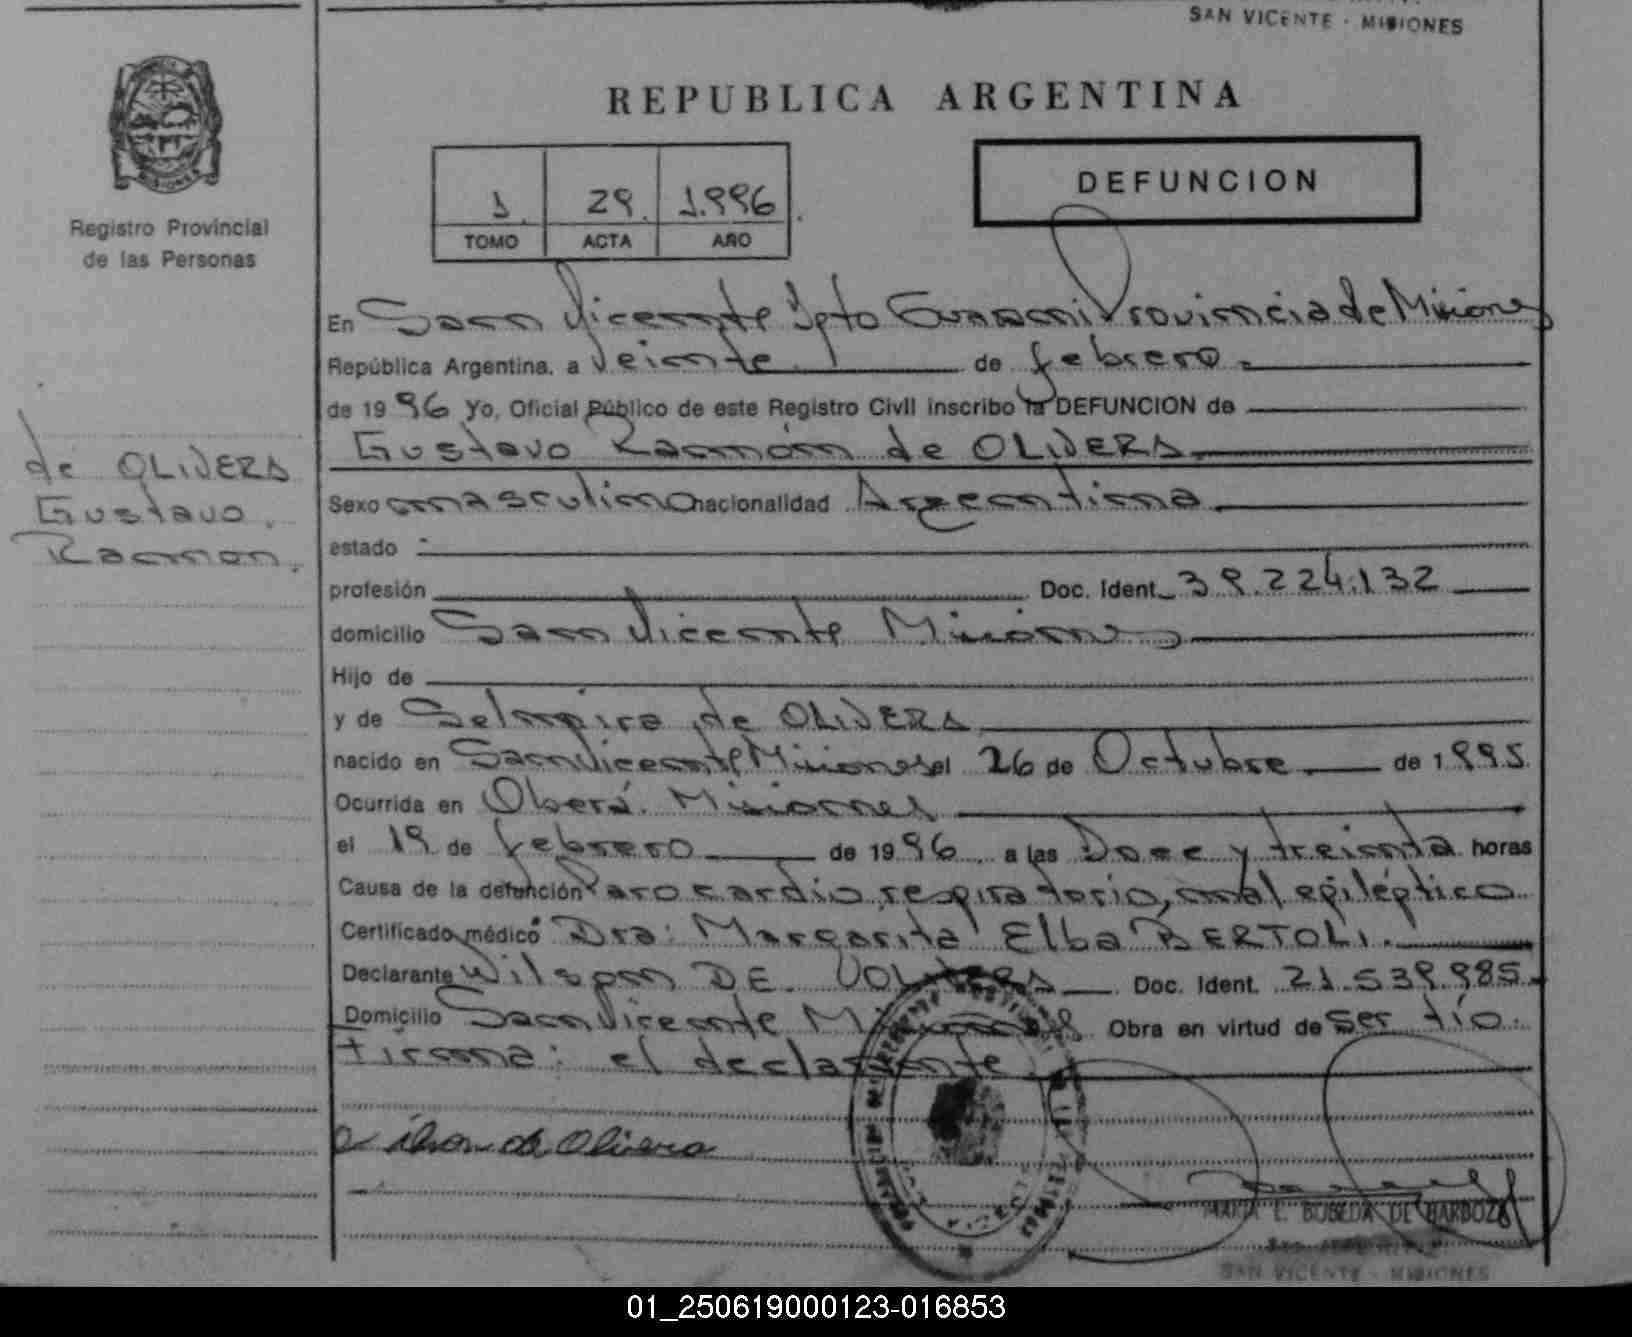 SAN VICENTE - MISIONES
REPUBLICA ARGENTINA
MISIONES
Registro Provincial
de las Personas
1. 29. 1.996.
TOMO ACTA AÑO
DEFUNCION
En San Vicente Dpto Guarani Provincia de Misiones
República Argentina, a Veinte de febrero.
de 1996 Yo, Oficial Público de este Registro Civil inscribo la DEFUNCION de
Gustavo Ramón de OLIVERA.
de OLIVERA
Gustavo.
Ramon.
Sexo masculino nacionalidad Argentina
estado -
profesión Doc. Ident. 39.224.132
domicilio San Vicente Misiones
Hijo de
y de Selmira de OLIVERA
nacido en San Vicente Misiones el 26 de Octubre de 1.995.
Ocurrida en Oberá. Misiones
el 19 de febrero de 1996. a las Doce y treinta horas
Causa de la defunción Paro cardio respiratorio, mal epiléptico
Certificado médico Dra: Margarita Elba BERTOLI.
Declarante Wilson DE Doc. Ident. 21.539.985.
Domicilio San Vicente Misiones Obra en virtud de ser tío.
Firma: el declarante.
de Olivera
MARIA E. BOBEDA DE BARBOZA
SAN VICENTE - MISIONES
01_250619000123-016853